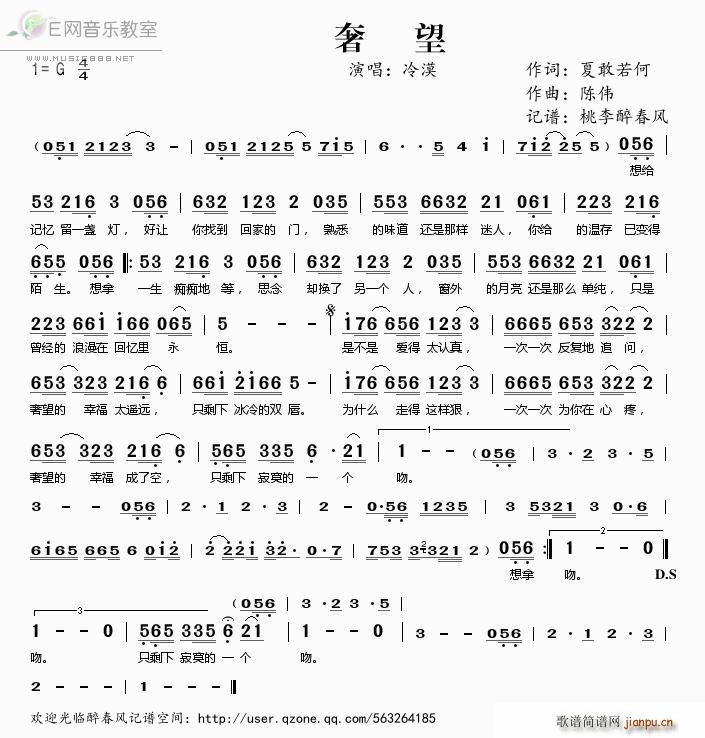 E网音乐教室
WWW.MUSIC888.NET
奢 望
1=G 4/4 演唱：冷漠 作词：夏敢若何
作曲：陈伟
记谱：桃李醉春风
（051 2123 3 - | 051 2125 5 715 | 6 · · 5 4 i | 7i2 255） 056 |
想给
53 216 3 056 | 632 123 2 035 | 553 6632 21 061 | 223 216
记忆 留一盏 灯，好让 你找到 回家的 门，熟悉 的味道 还是那样 迷人，你给 的温存 已变得
655 056 ‖: 53 216 3 056 | 632 123 2 035 | 553 6632 21 061 |
陌生。想拿 一生 痴痴地 等，思念 却换了 另一个 人，窗外 的月亮 还是那么 单纯，只是
223 66i i66 065 | 5 - - - | i76 656 123 3 | 6665 653 322 2 |
曾经的 浪漫在 回忆里 永 恒。 是不是 爱得 太认真， 一次一次 反复地 追 问，
653 323 216 6 | 66i 2i66 5 5 | i76 656 123 3 | 6665 653 322 2 |
奢望的 幸福 太遥远， 只剩下 冰冷的双 唇。 为什么 走得 这样狠， 一次一次 为你在 心 疼，
653 323 216 6 | 565 335 6 · 21 | 1 - - （056 | 3 · 2 3 · 5 |
奢望的 幸福 成了空， 只剩下 寂寞的 一 个 吻。
3 - - 056 | 2 · 1 2 · 3 | 2 - 0·56 1235 | 3 5321 3 0·6 |
6i65 665 6 0i2 | 2 22i 32· 0·7 | 753 3321 2 ） 056 :‖ 1 - - 0 ‖
想拿 吻。 D.S
（056 | 3 · 2 3 · 5）
1 - - 0 | 565 335 6 21 | 1 - - 0 | 3 - - 056 | 2 · 1 2 · 3 |
吻。 只剩下 寂寞的 一个 吻。
2 - - - | 1 - - - ‖
欢迎光临醉春风记谱空间：http://user.qzone.qq.com/563264185
歌谱简谱网 jianpu.cn